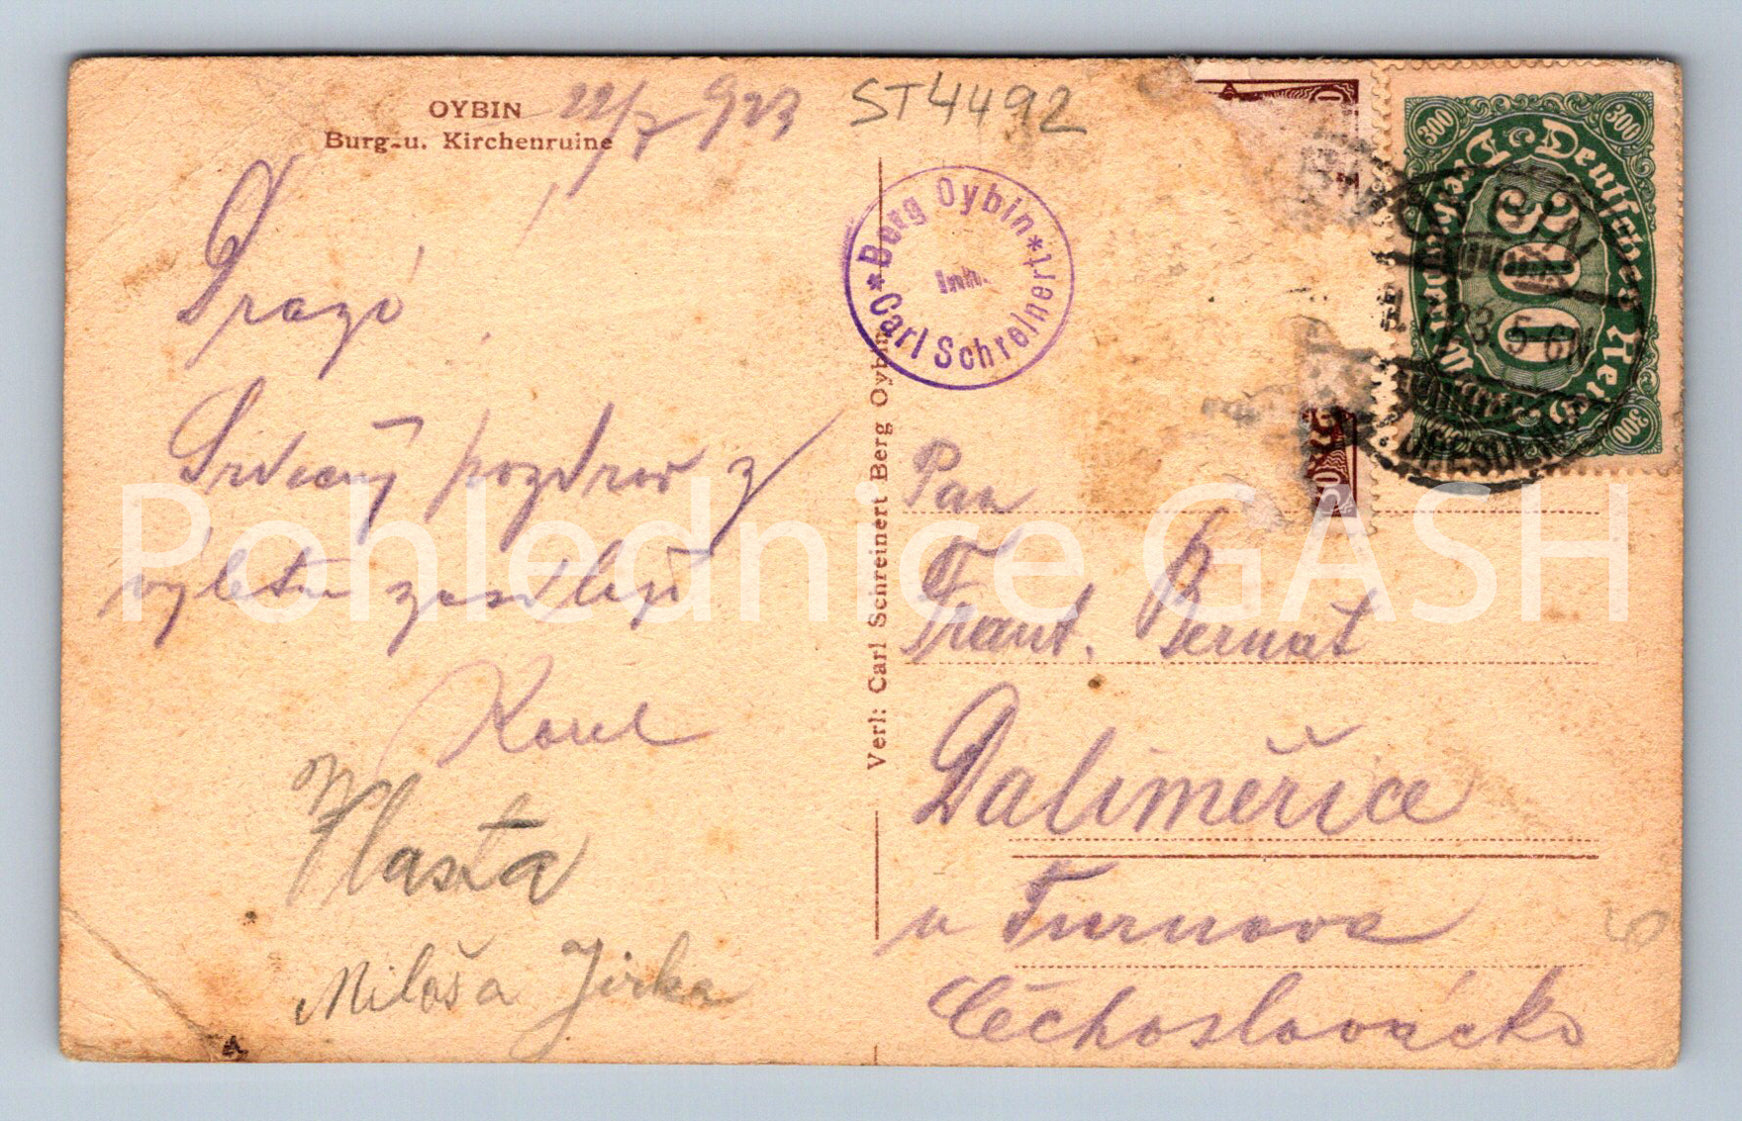 OYBIN
Burg-u. Kirchenruine
22/7 923
ST4492
Drazí!
Srdečný pozdrav z
výletu zasílají
Karel
Vlasta
Miloš a Jirka
Verl: Carl Schreinert Berg Oybin
*Berg Oybin*
Inh.
Carl Schreinert
Deutsches Reich
300
300
300
300
23. 5-6N
Pan
Frant. Bernat
Dalimeřice
u Turnova
Čechoslovácko
Pohlednice GASH